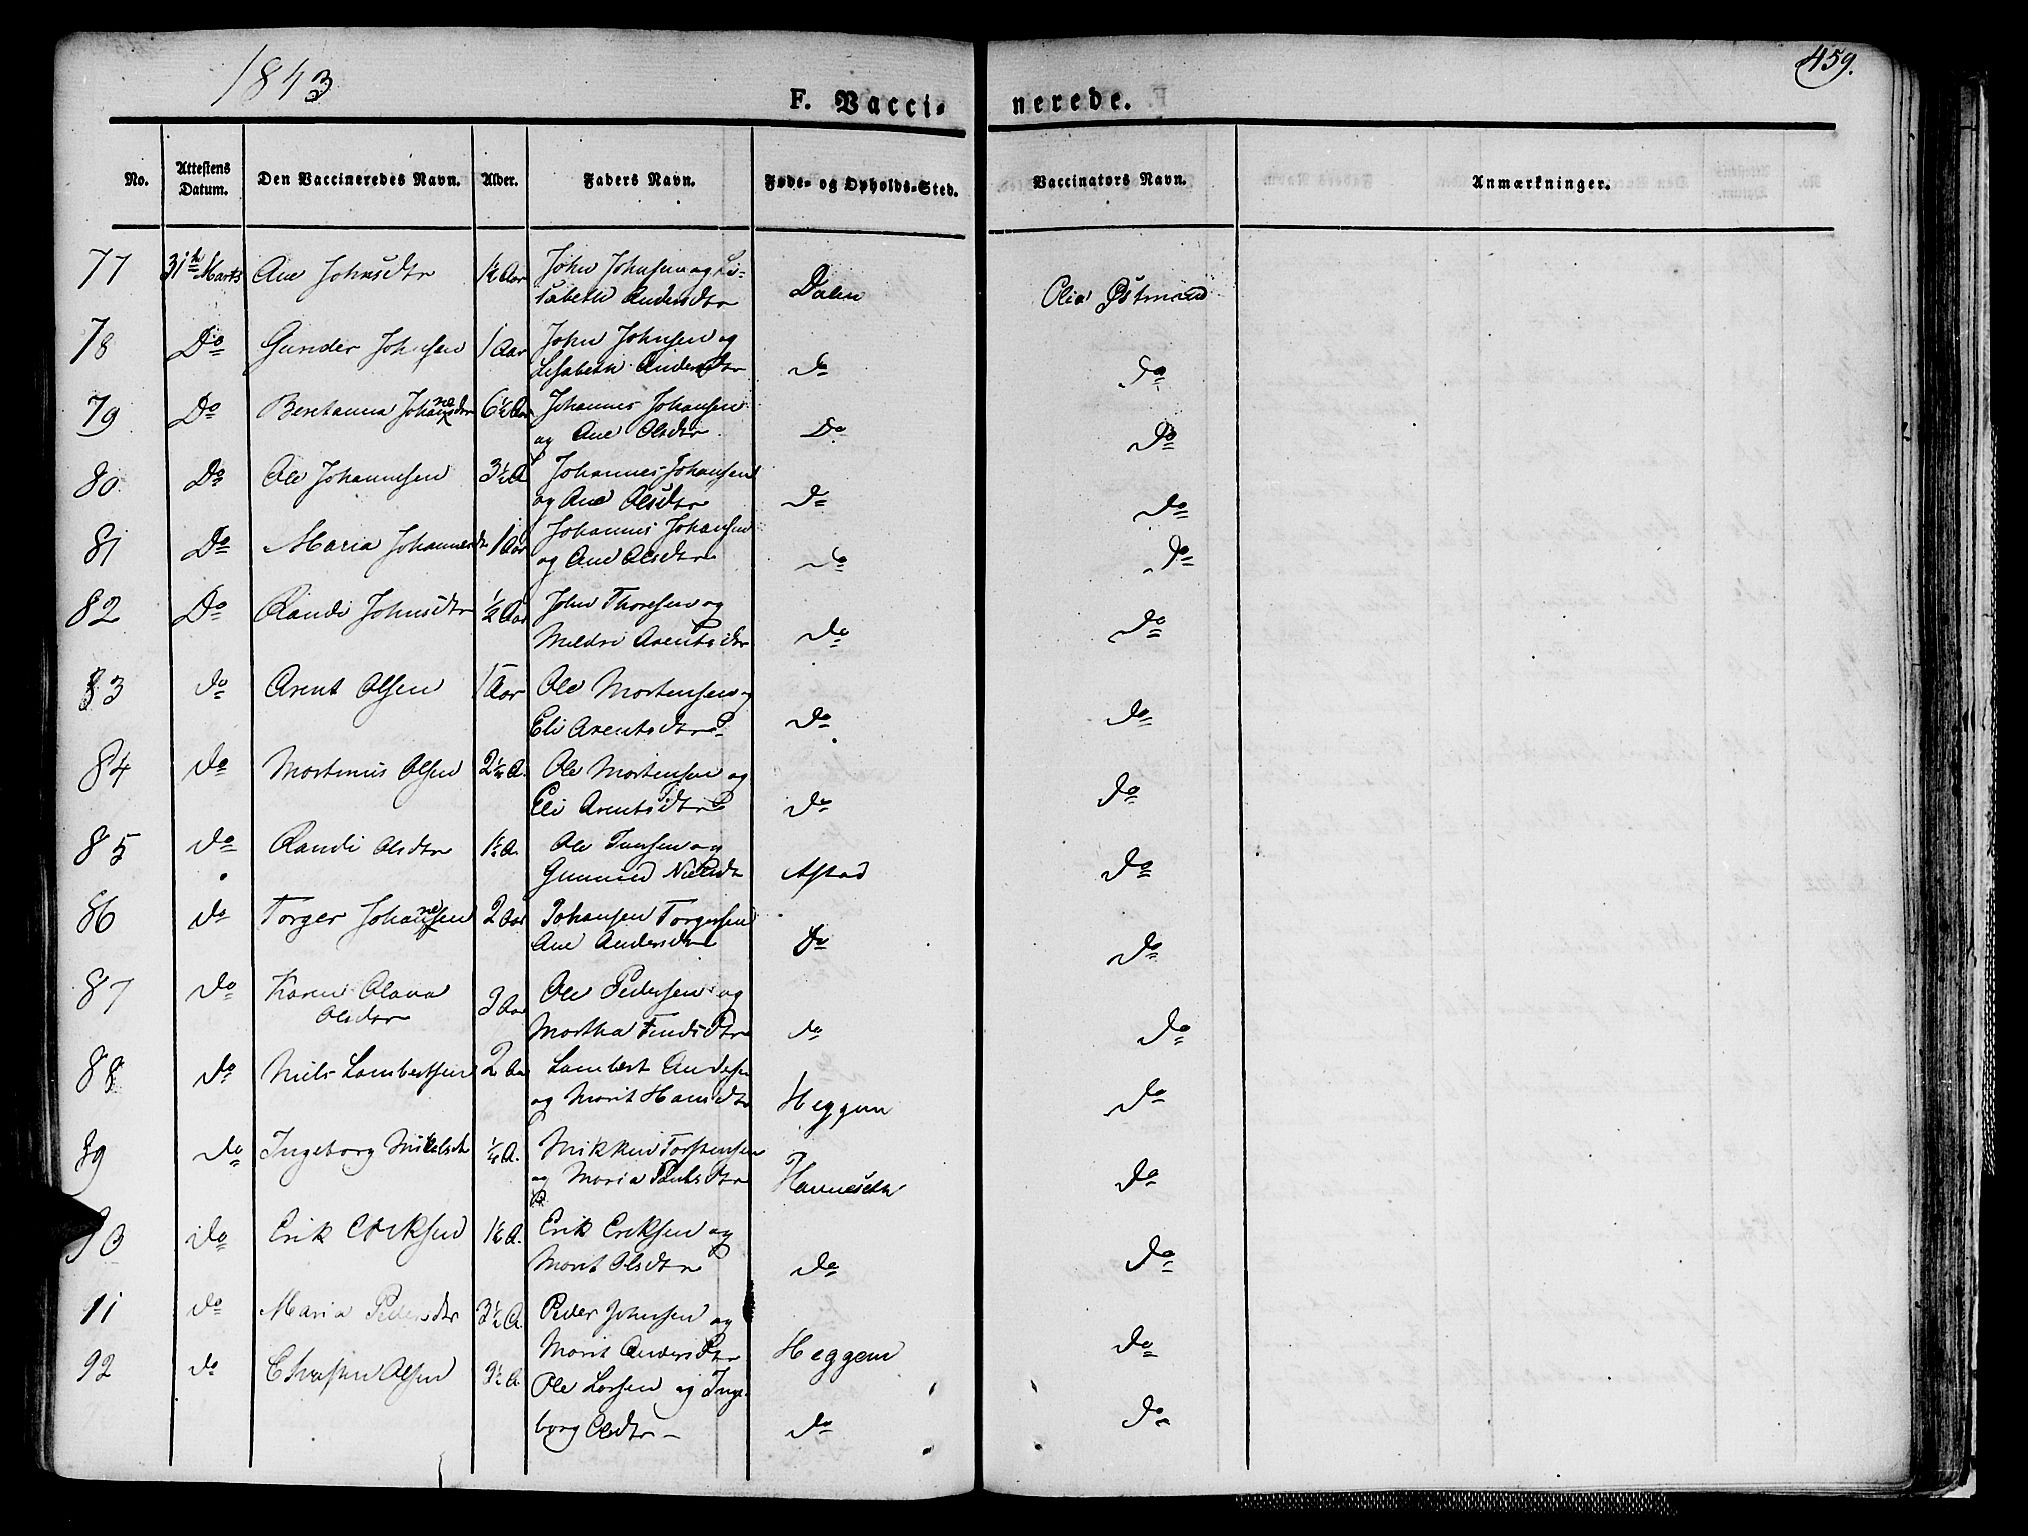 1843
459.
F. Vacci-
nerede.
No. Attestens Datum. Den Vaccineredes Navn. Alder. Faders Navn. Føde- og Opholds-Sted. Vaccinators Navn. Anmærkninger.
77 31te Marts Ane Johnsdtr 1½ Aar John Johnsen og Li-
sabeth Andersdtr Dalen Olia Østmand
78 Do Gunder Johnsen 1 Aar John Johnsen og
Lisabeth Andersdtr do do
79 Do Beretanna Johannesdtr 6½ Aar Johannes Johansen
og Ane Olsdtr Do do
80 Do Ole Johannesen 3½ A Johannes Johansen
og Ane Olsdtr do do
81 Do Maria Johannesdtr 1 Aar Johannes Johansen
og Ane Olsdtr do do
82 Do Randi Johnsdtr ½ Aar John Thoresen og
Mildri Arentsdtr do do
83 do Arent Olsen 1 Aar Ole Mortensen og
Eli Arentsdtr do do
84 do Mortinus Olsen 2¼ A. Ole Mortensen og
Eli Arentsdtr do do
85 do Randi Olsdtr 1½ A. Ole og
Nielsdt Astad do
86 do Torger Johannesen 2 Aar Johansen Torgersen
Ane Andersdtr do do
87 do Karen Olava
Olsdtr 3 Aar Ole Pedersen og
Martha Findsdtr do do
88 do Niels Lambertsen 2 Aar Lambert Andersen
og Marit Hansdtr Heggem do
89 do Ingeborg Mikelsdtr ¼ A. Mikkel Torstensen
og Maria Paulsdtr do
90 do Erik Eriksen 1½ A. Erik Eriksen og
Marit Olsdtr do do
91 do Maria Pedersdtr 3½ A. Peder Johnsen og
Marit Andersdtr Heggem do
92 do Christen Olsen 9½ A Ole Larsen og Inge-
borg Olsdtr do do